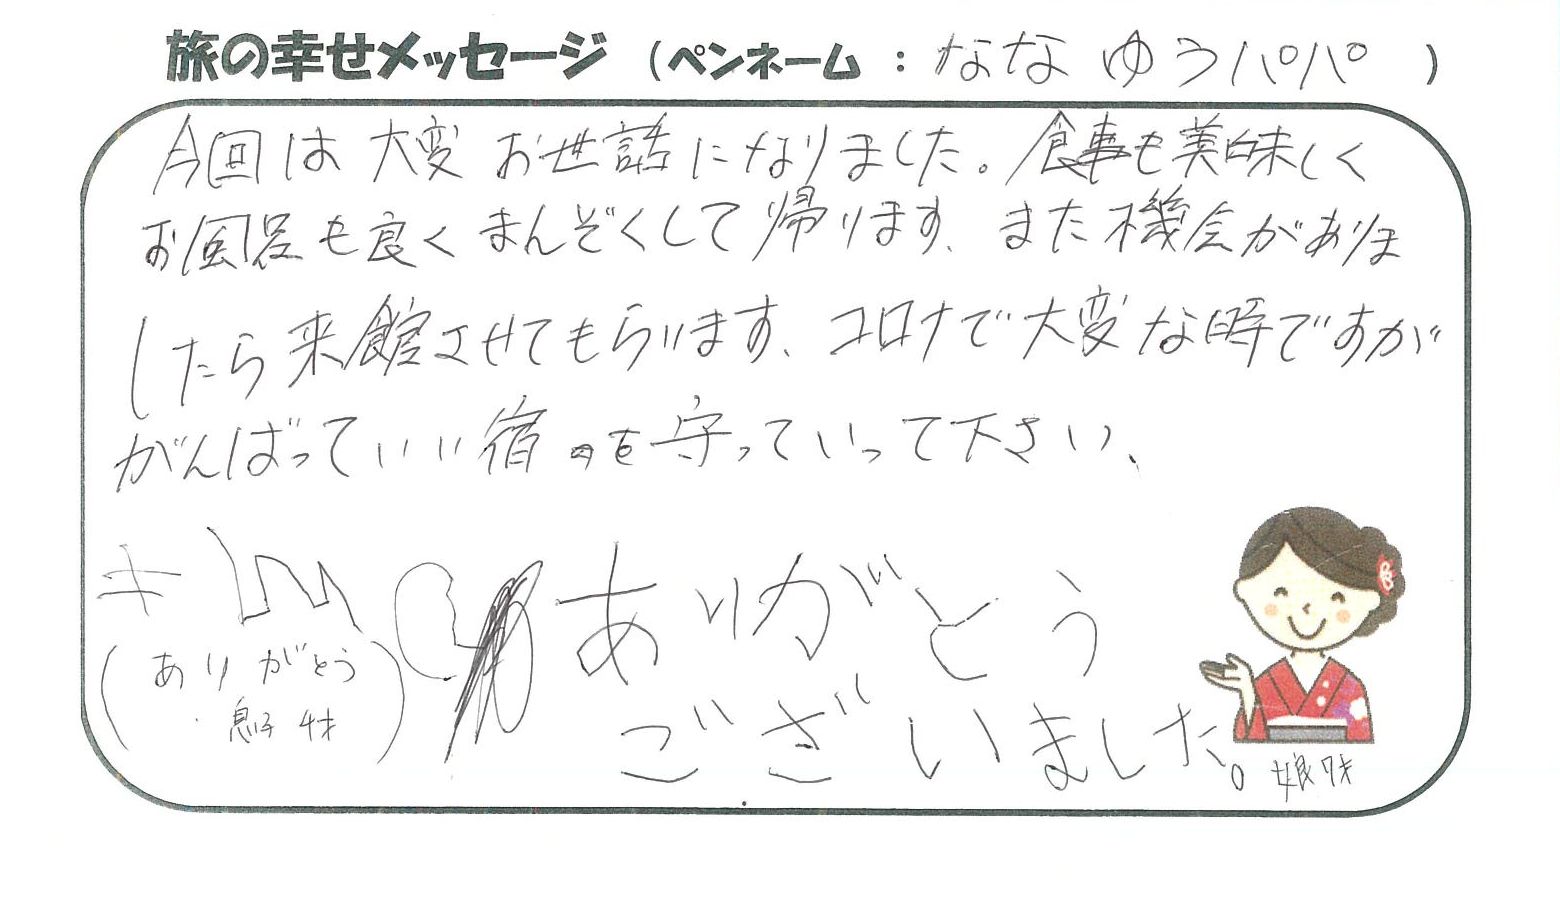 旅の幸せメッセージ (ペンネーム : なな ゆうパパ )
今回は大変お世話になりました。食事も美味しく
お風呂も良くまんぞくして帰ります、また機会がありま
したら来館させてもらいます、コロナで大変な時ですが
がんばっていい宿を守っていって下さい、
(ありがとう
息子 4才)
ありがとう
ございました。
娘 7才